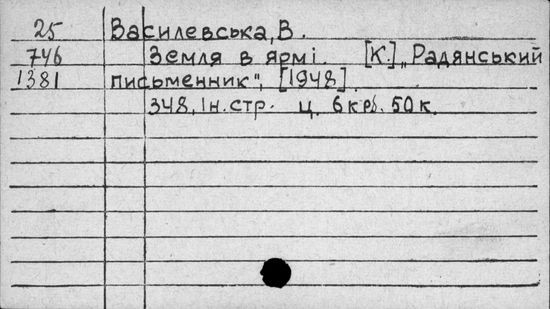 25 Василевська, В.
746 Земля в ярмі. [К.] „Радянський
1381 письменник", [1948].
348, Ін. стр. ц. 6 крб. 50 к.